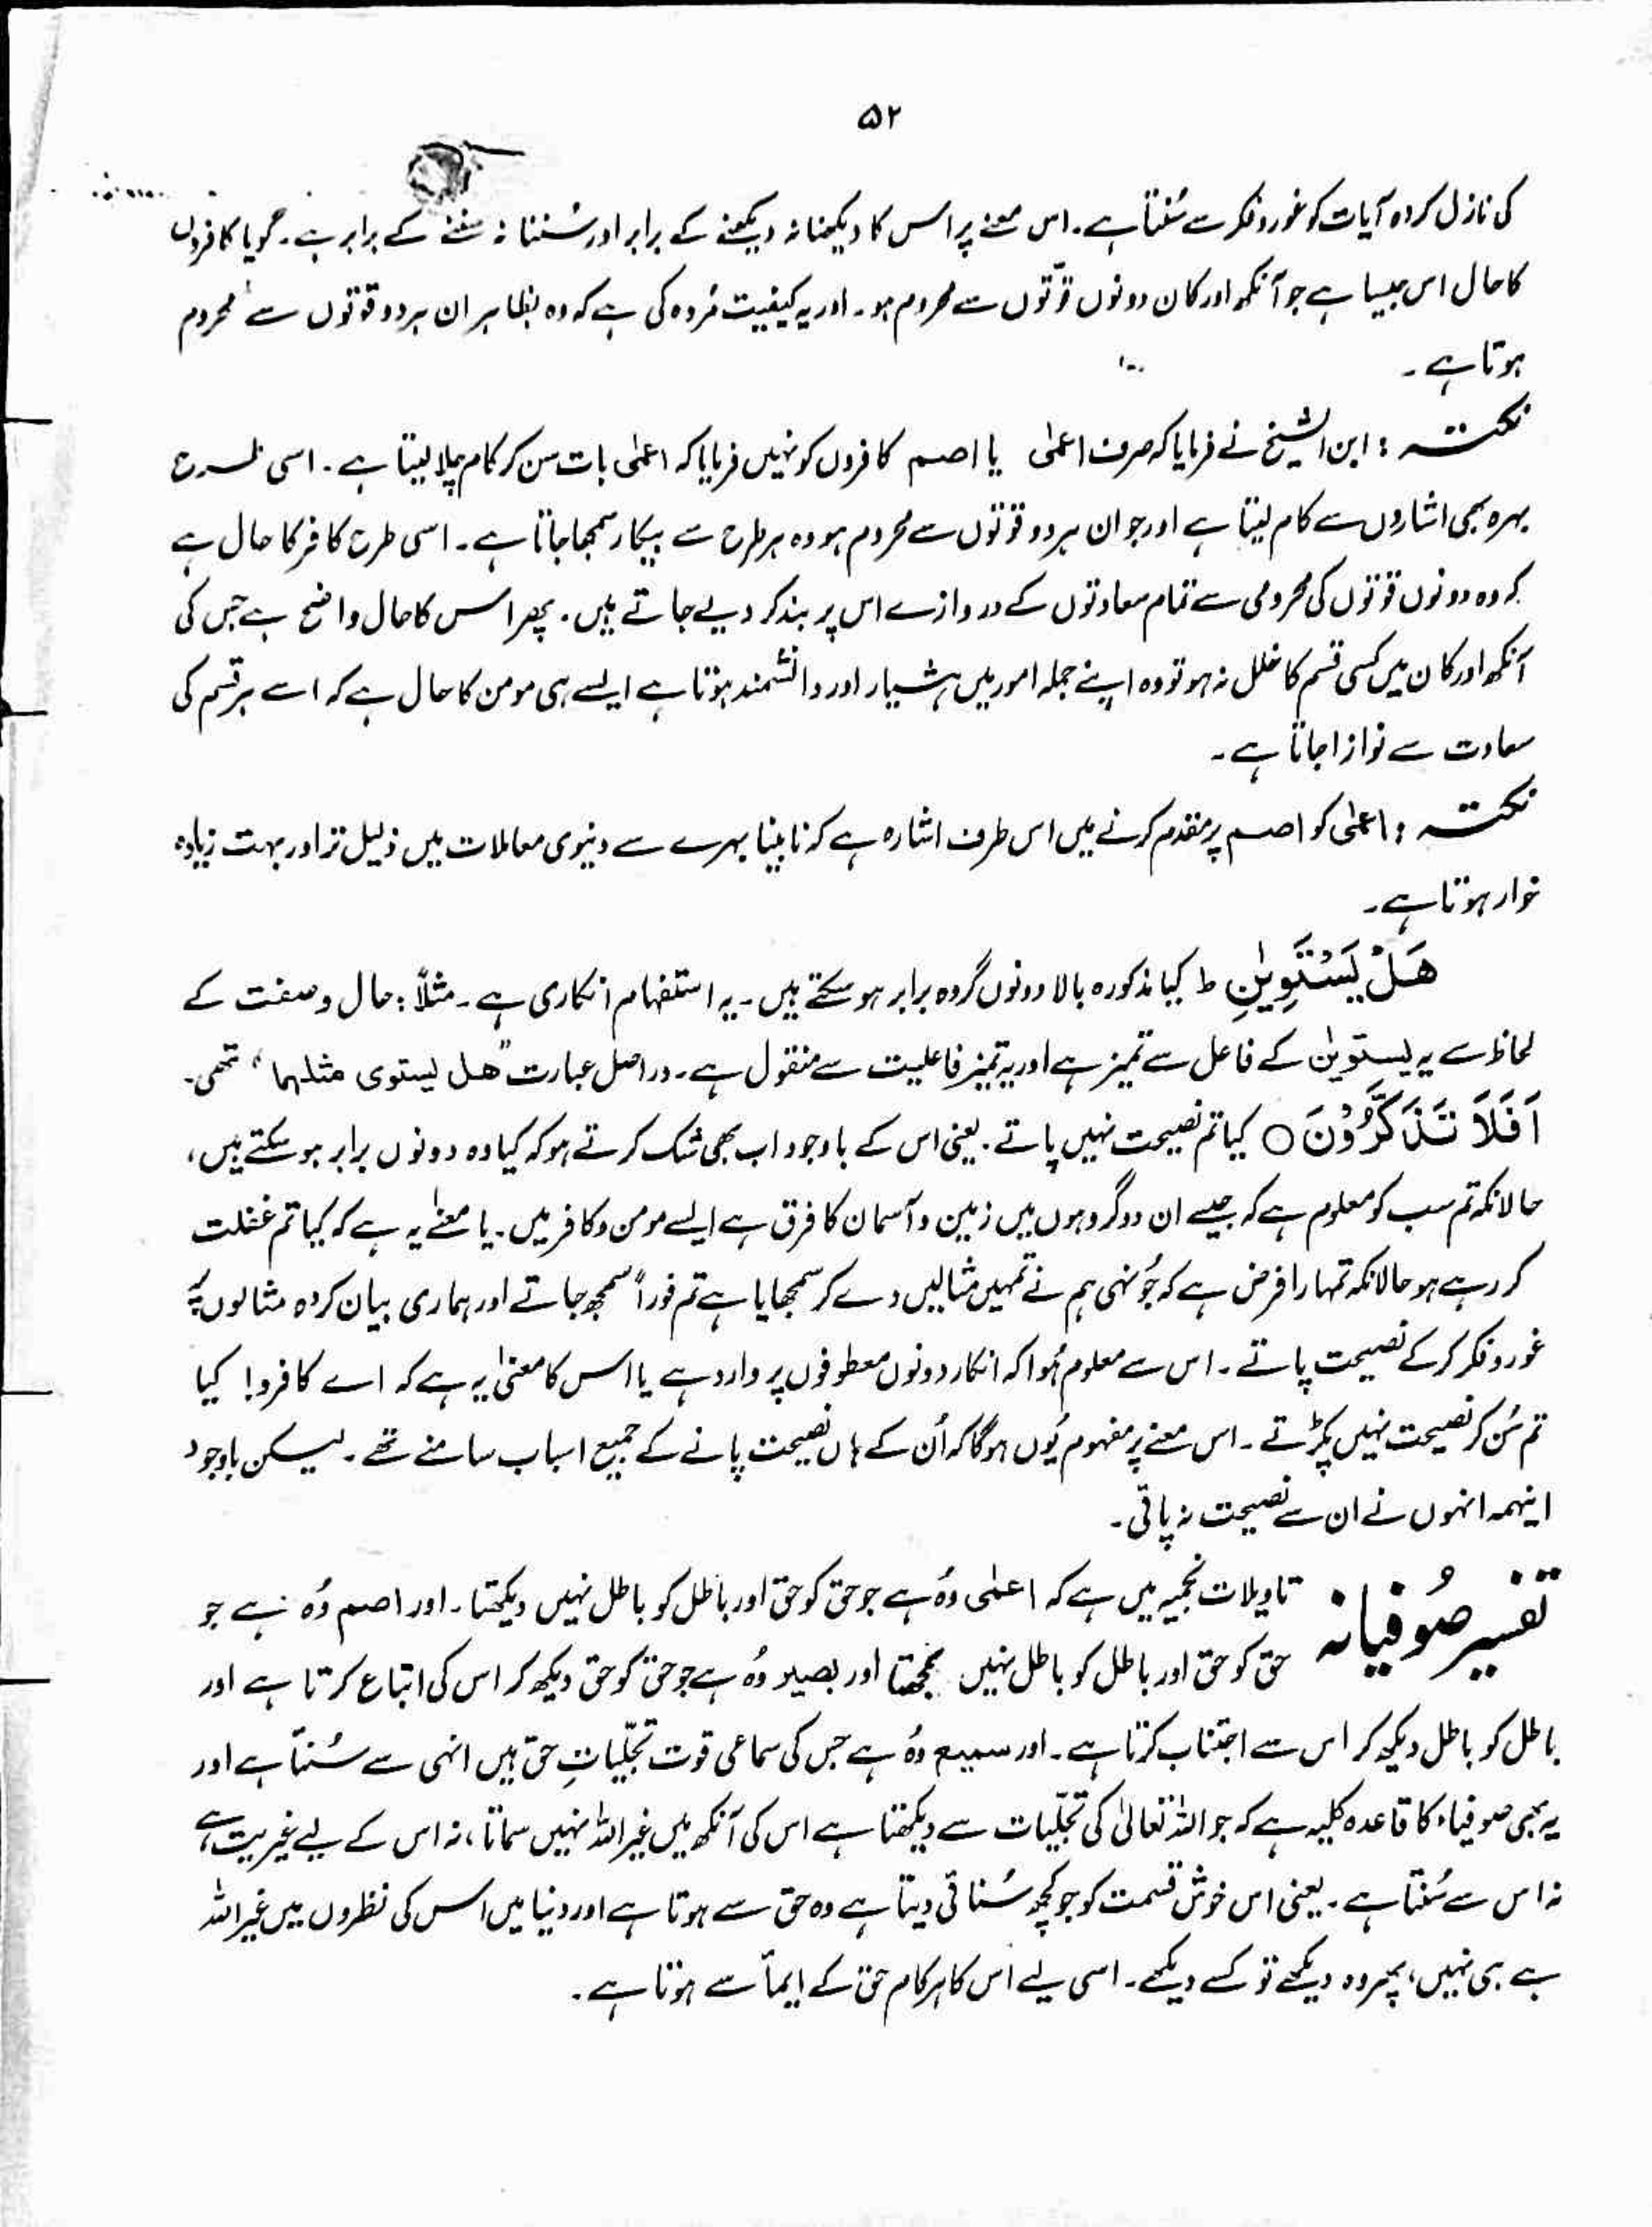 ۵۲
کی نازل کردہ آیات کو غور و فکر سے سُنتا ہے۔ اس معنے پر اس کا دیکھنا نہ دیکھنے کے برابر اور سُننا نہ سننے کے برابر ہے۔ گویا کافروں
کا حال اس جیسا ہے جو آنکھ اور کان دونوں قوّتوں سے محروم ہو۔ اور یہ کیفیت مُردہ کی ہے کہ وہ بظاہر ان ہر دو قوتوں سے محروم
ہوتا ہے۔
نکتہ : ابن الشیخ نے فرمایا کہ صرف اعمٰی یا اصم کافروں کو نہیں فرمایا کہ اعمٰی بات سن کر کام چلا لیتا ہے۔ اسی طرح
بہرہ بھی اشاروں سے کام لیتا ہے اور جو ان ہر دو قوتوں سے محروم ہو وہ ہر طرح سے بیکار سمجھا جاتا ہے۔ اسی طرح کافر کا حال ہے
کہ وہ دونوں قوتوں کی محرومی سے تمام سعادتوں کے دروازے اس پر بند کر دیے جاتے ہیں۔ پھر اس کا حال واضح ہے جس کی
آنکھ اور کان میں کسی قسم کا خلل نہ ہو تو وہ اپنے جملہ امور میں ہشیار اور دانشمند ہوتا ہے ایسے ہی مومن کا حال ہے کہ اسے ہر قسم کی
سعادت سے نوازا جاتا ہے۔
نکتہ : اعمٰی کو اصم پر مقدم کرنے میں اس طرف اشارہ ہے کہ نابینا بہرے سے دنیوی معاملات میں ذلیل تر اور بہت زیادہ
خوار ہوتا ہے۔
هَلْ يَسْتَوِيٰنِ ط کیا مذکورہ بالا دونوں گروہ برابر ہو سکتے ہیں۔ یہ استفہام انکاری ہے۔ مثلاً : حال و صفت کے
لحاظ سے یہ یستویٰن کے فاعل سے تمیز ہے اور یہ تمیز فاعلیت سے منقول ہے۔ دراصل عبارت "ھل یستوی مثلہما" تھی۔
اَفَلَا تَذَكَّرُوْنَ ○ کیا تم نصیحت نہیں پاتے۔ یعنی اس کے باوجود اب بھی شک کرتے ہو کہ کیا وہ دونوں برابر ہو سکتے ہیں،
حالانکہ تم سب کو معلوم ہے کہ جیسے ان دو گروہوں میں زمین و آسمان کا فرق ہے ایسے مومن و کافر میں۔ یا معنٰے یہ ہے کہ کیا تم غفلت
کر رہے ہو حالانکہ تمہارا فرض ہے کہ جُونہی ہم نے تمہیں مثالیں دے کر سمجھایا ہے تم فوراً سمجھ جاتے اور ہماری بیان کردہ مثالوں پر
غور و فکر کر کے نصیحت پاتے۔ اس سے معلوم ہُوا کہ انکار دونوں معطوفوں پر وارد ہے یا اس کا معنٰی یہ ہے کہ اے کافرو! کیا
تم سُن کر نصیحت نہیں پکڑتے۔ اس معنے پر مفہوم یُوں ہوگا کہ اُن کے ہاں نصیحت پانے کے جمیع اسباب سامنے تھے۔ لیکن باوجود
اینہمہ انہوں نے ان سے نصیحت نہ پائی۔
تفسیر صُوفیانہ تاویلات نجمیہ میں ہے کہ اعمٰی وُہ ہے جو حق کو حق اور باطل کو باطل نہیں دیکھتا۔ اور اصم وُہ ہے جو
حق کو حق اور باطل کو باطل نہیں سمجھتا اور بصیر وُہ ہے جو حق کو حق دیکھ کر اس کی اتباع کرتا ہے اور
باطل کو باطل دیکھ کر اس سے اجتناب کرتا ہے۔ اور سمیع وُہ ہے جس کی سماعی قوت تجلّیاتِ حق ہیں انہی سے سُنتا ہے اور
یہ بھی صوفیاء کا قاعدہ کلیہ ہے کہ جو اللہ تعالیٰ کی تجلّیات سے دیکھتا ہے اس کی آنکھ میں غیر اللہ نہیں سماتا، نہ اس کے لیے غیریت ہے،
نہ اس سے سُنتا ہے۔ یعنی اس خوش قسمت کو جو کچھ سُنائی دیتا ہے وہ حق سے ہوتا ہے اور دنیا میں اس کی نظروں میں غیر اللہ
ہے ہی نہیں، پھر وہ دیکھے تو کسے دیکھے۔ اسی لیے اس کا ہر کام حق کے ایماً سے ہوتا ہے۔